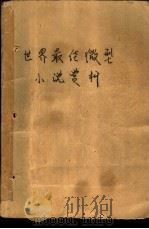 世界最佳微型
小说赏析